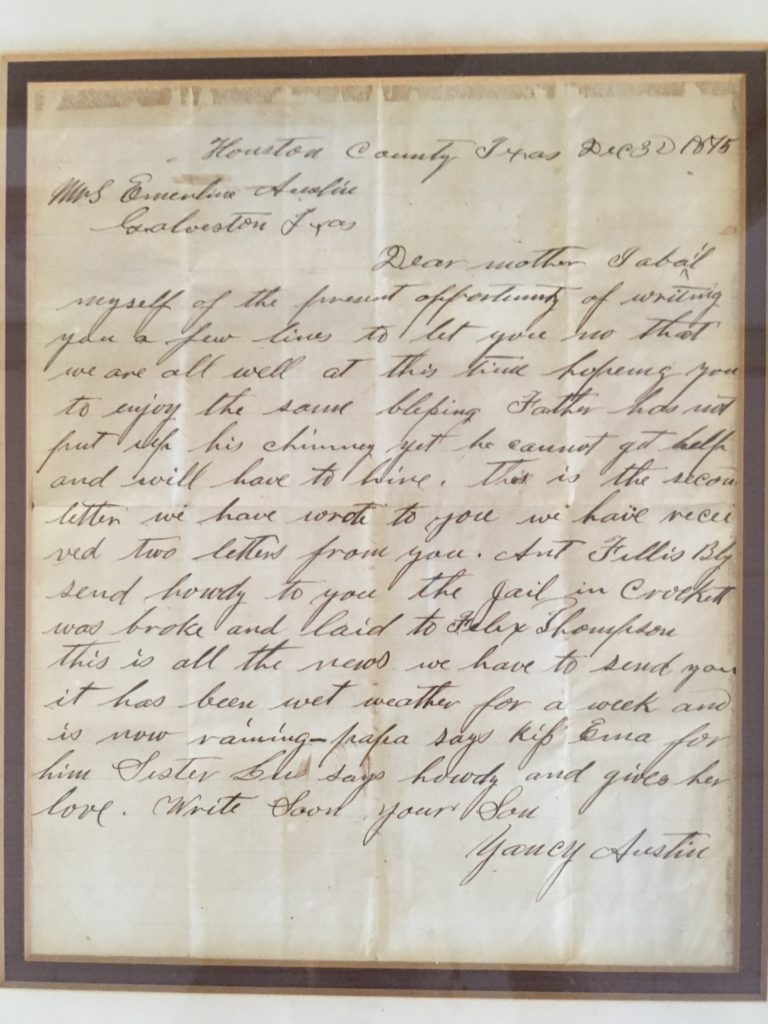 Houston County Texas Dec 3D 1875
Mrs Emerline Austin
Galveston Texas
Dear mother I abail
myself of the present opportunity of writing
you a few lines to let you no that
we are all well at this time hopeing you
to enjoy the same blessing Father has not
put up his chimney yet he cannot get help
and will have to hire. this is the secon
letter we have wrote to you we have recei
ved two letters from you. Ant Fillis Bly
send howdy to you the Jail in Crockett
was broke and laid to Felix Thompson
this is all the news we have to send you
it has been wet weather for a week and
is now raining – papa says kiss Ema for
him Sister Lus says howdy and gives her
love. Write Soon your Son
Yancy Austin